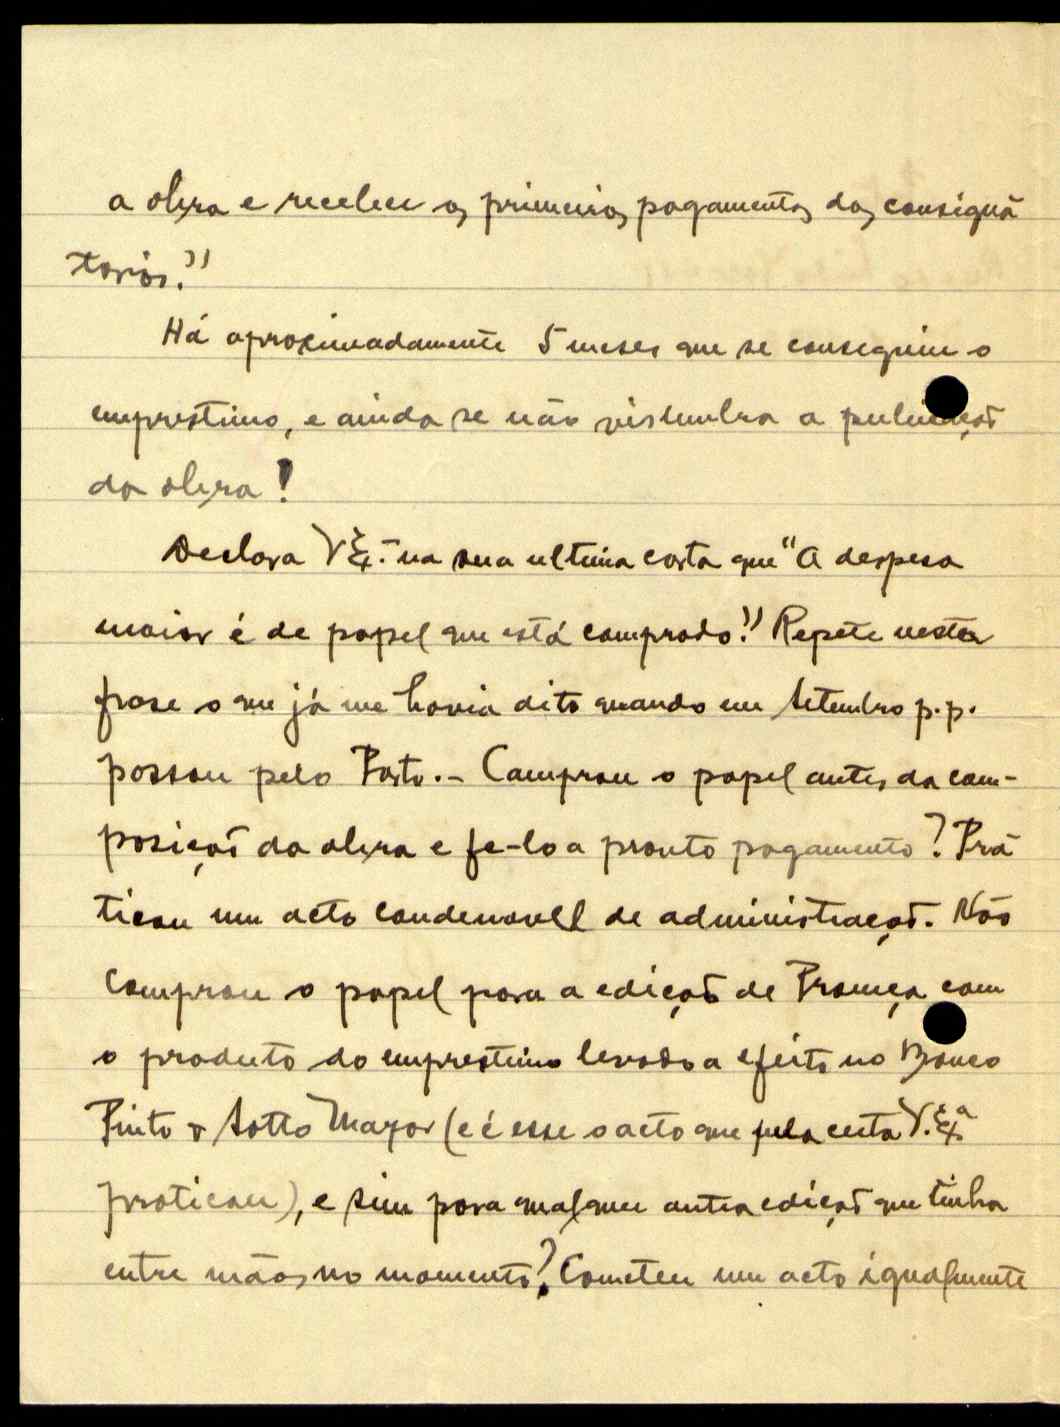 a obra e receber os primeiros pagamentos dos consigná
tarios."
Há aproximadamente 5 meses que se conseguiu o
emprestimo, e ainda se não vislumbra a publicação
da obra!
Declara V. Ex.ª na sua ultima carta que "A despesa
maior é de papel que está comprado." Repete nesta
frase o que já me havia dito quando em Setembro p.p.
passou pelo Porto.- Comprou o papel antes da com-
posição da obra e fe-lo a pronto pagamento? Prá
ticou um acto condenavel de administração. Não
comprou o papel para a edição de Proença com
o produto do emprestimo levado a efeito no Banco
Pinto & Sotto Mayor (e é esse o acto que pela certa V. Ex.ª
praticou), e sim para qualquer outra edição que tinha
entre mãos no momento? Cometeu um acto igualmente